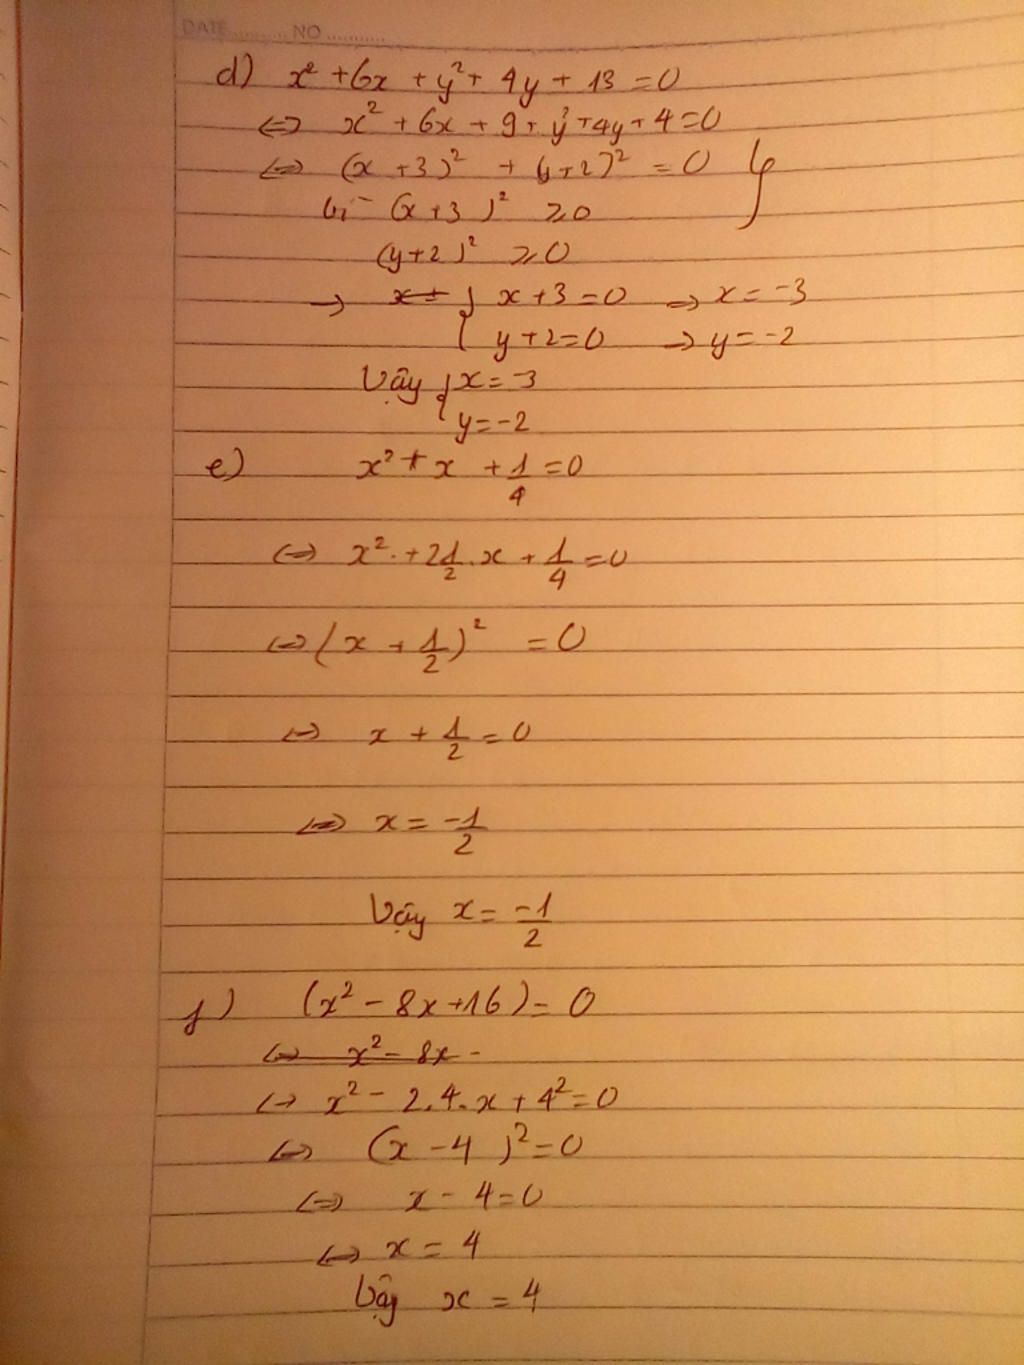 DATE .......... NO ..........
d) x² + 6x + y² + 4y + 13 = 0
⇔ x² + 6x + 9 + y² + 4y + 4 = 0
⇔ (x + 3)² + (y + 2)² = 0
(x + 3)² ≥ 0
(y + 2)² ≥ 0
→ { x + 3 = 0 → x = -3
{ y + 2 = 0 → y = -2
Vậy { x = -3
{ y = -2
e) x² + x + 1/4 = 0
⇔ x² + 2 1/2 . x + 1/4 = 0
⇔ (x + 1/2)² = 0
⇔ x + 1/2 = 0
⇔ x = -1/2
Vậy x = -1/2
f) (x² - 8x + 16) = 0
⇔ x² - 8x -
⇔ x² - 2.4.x + 4² = 0
⇔ (x - 4)² = 0
⇔ x - 4 = 0
⇔ x = 4
Vậy x = 4